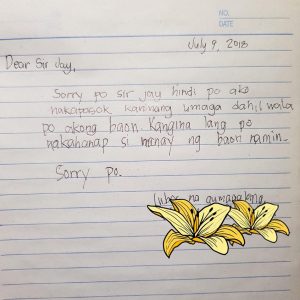 NO.
DATE
July 9, 2018
Dear Sir Jay,
Sorry po sir jay hindi po ako
nakapasok kaninang umaga dahil wala
po akong baon. Kangina lang po
nakahanap si nanay ng baon namin.
Sorry po.
na gumagalang